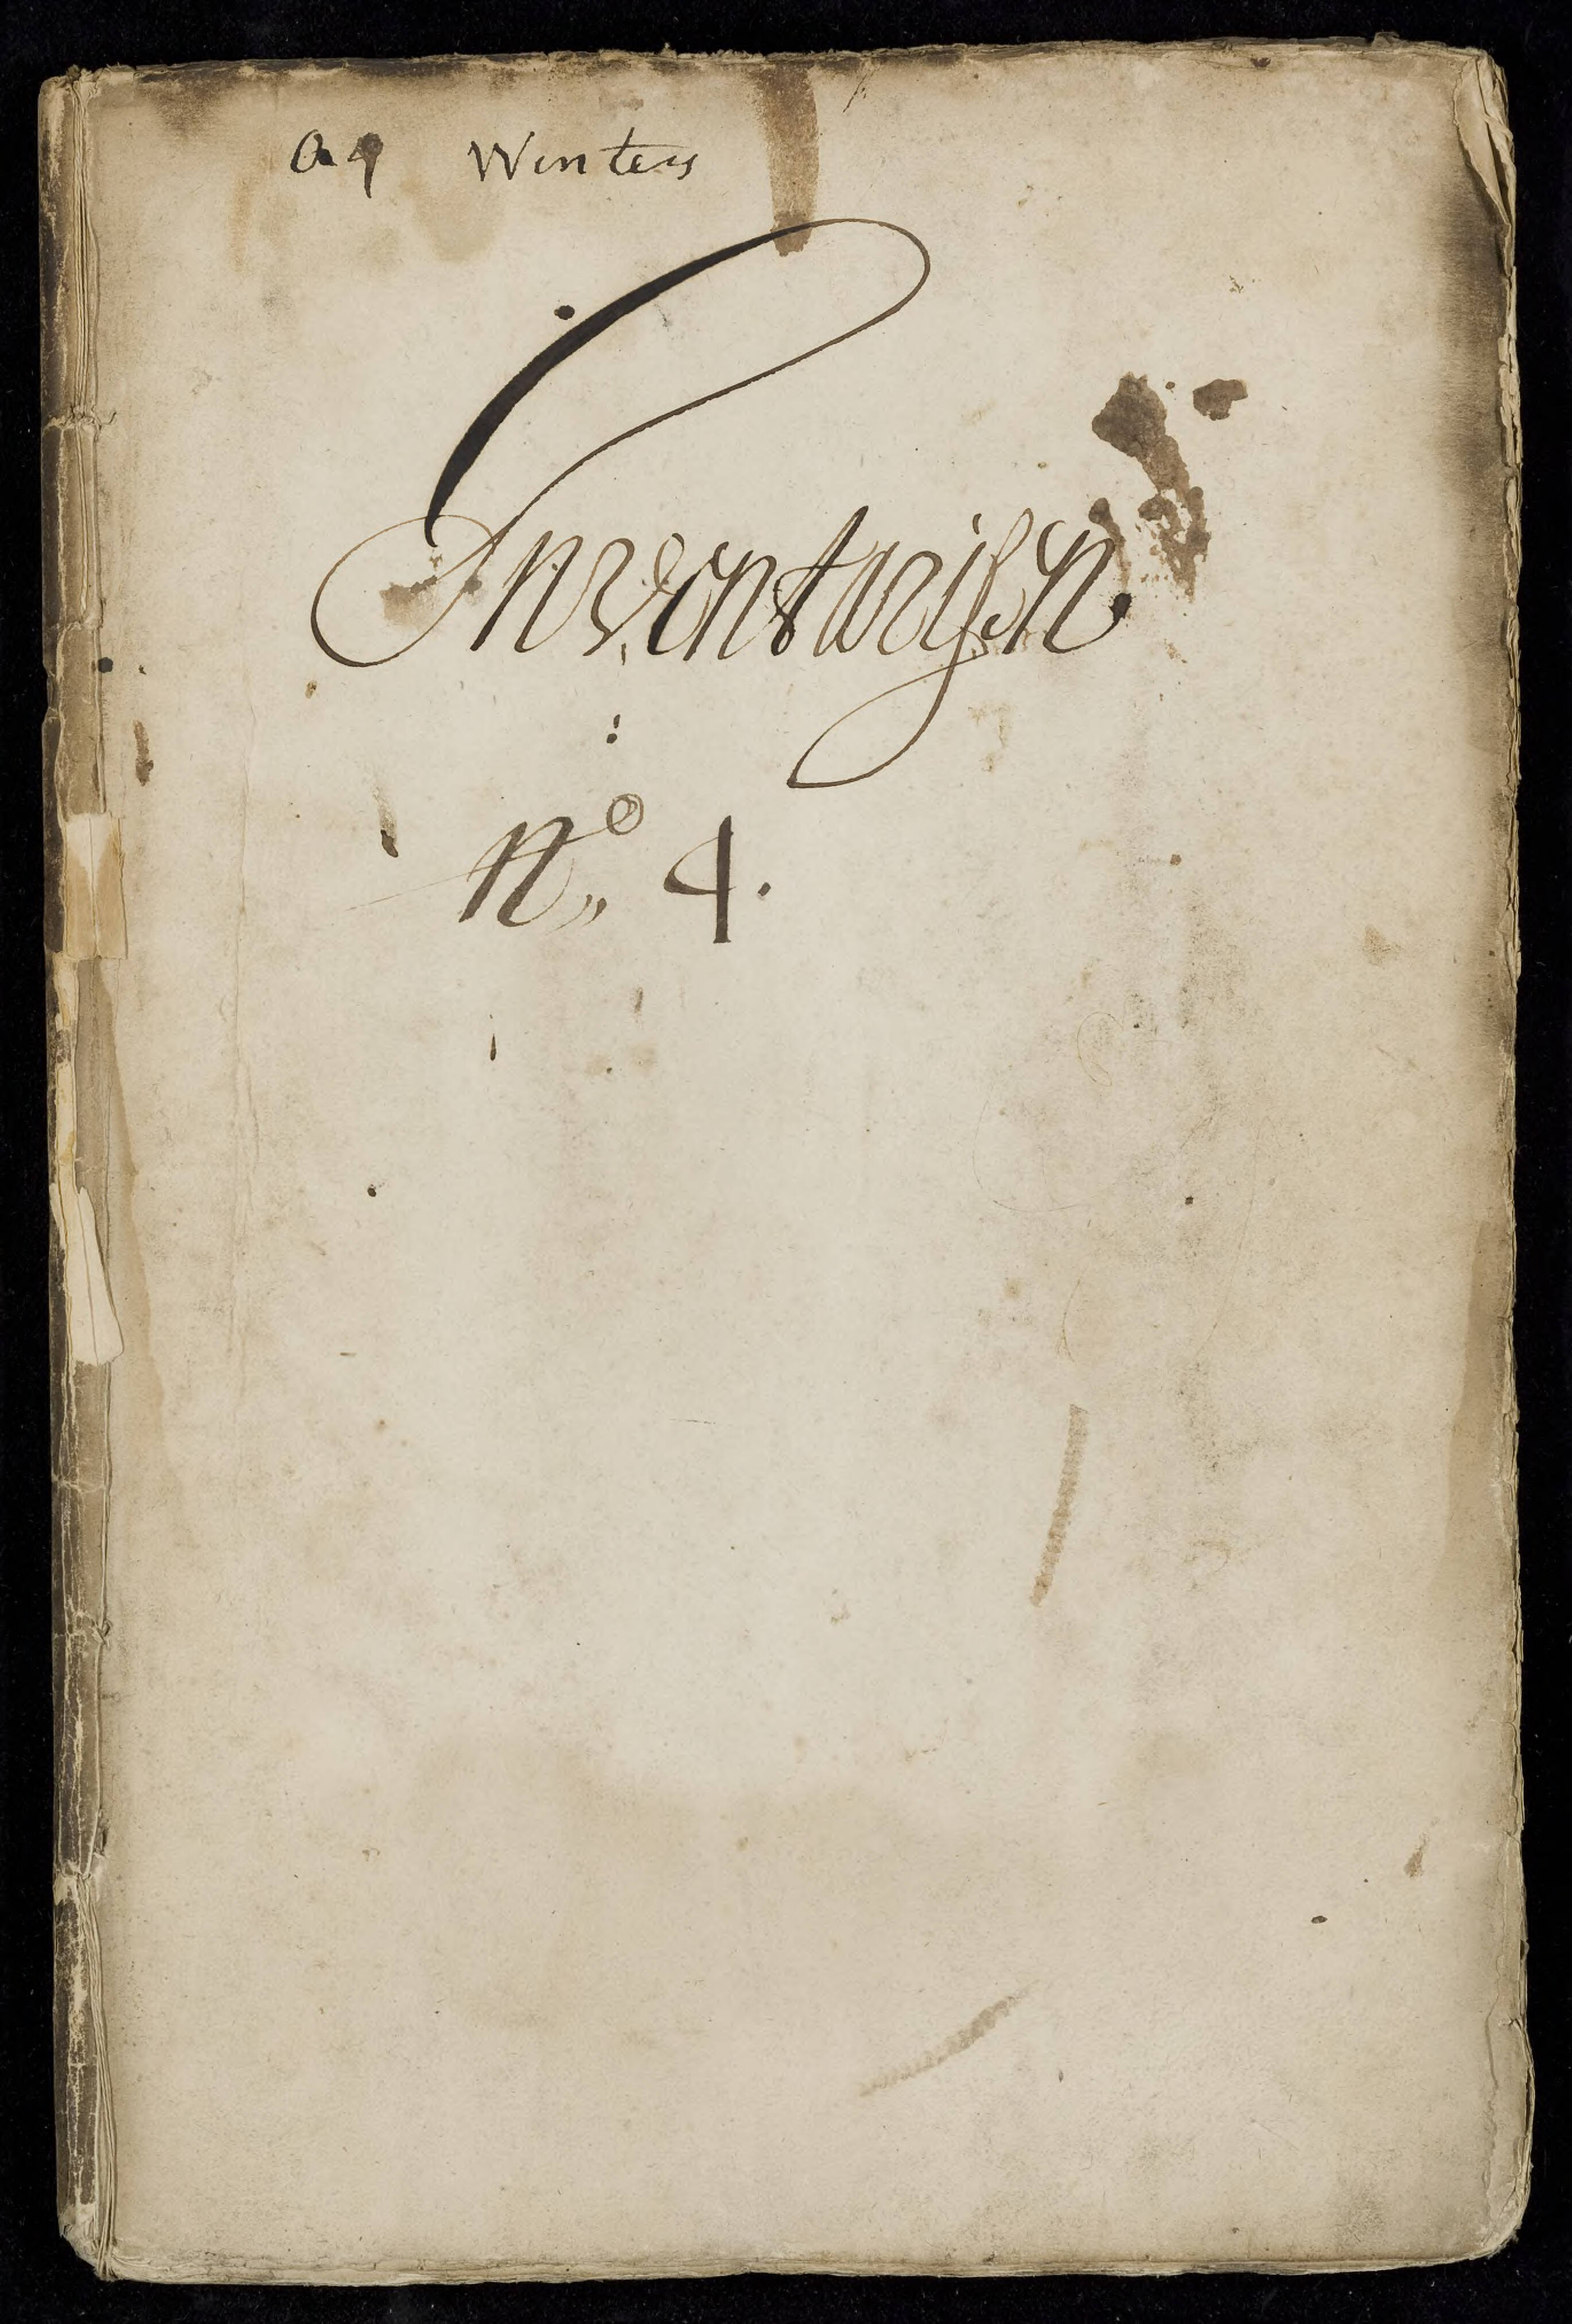 Winters
Inventarissen
N.o 4.